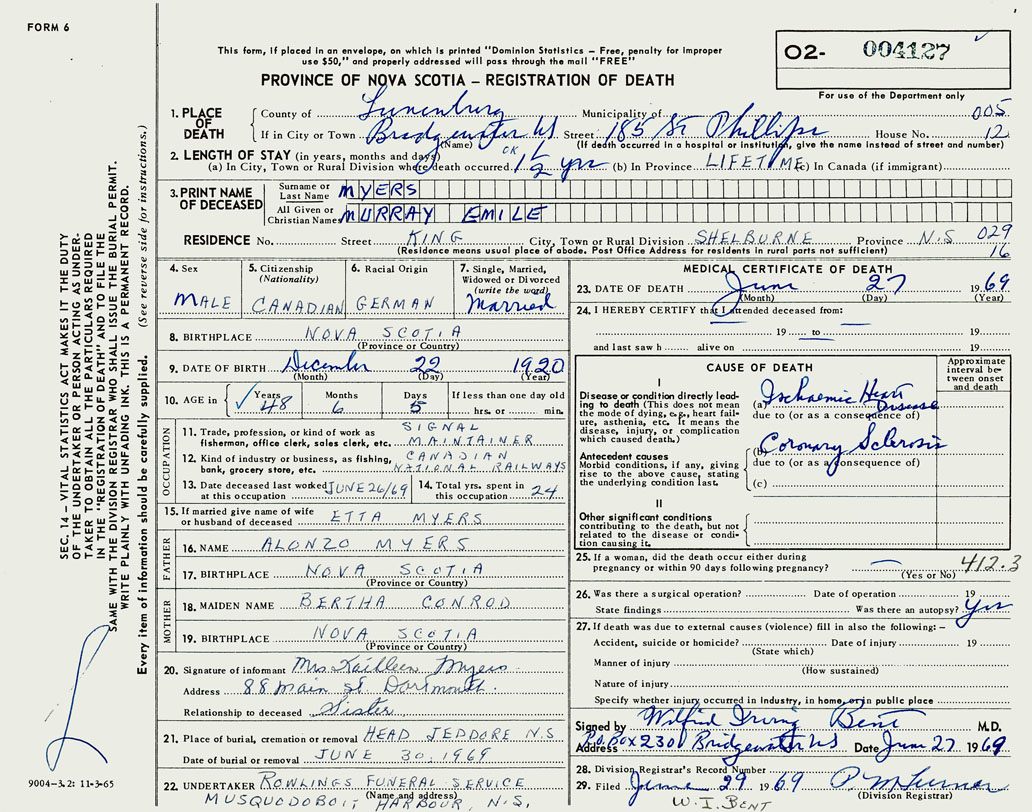 FORM 6
O2- 004127
For use of the Department only
This form, if placed in an envelope, on which is printed "Dominion Statistics – Free, penalty for improper
use $50," and properly addressed will pass through the mail "FREE"
PROVINCE OF NOVA SCOTIA – REGISTRATION OF DEATH
SEC. 14 – VITAL STATISTICS ACT MAKES IT THE DUTY
OF THE UNDERTAKER OR PERSON ACTING AS UNDER-
TAKER TO OBTAIN ALL THE PARTICULARS REQUIRED
IN THE "REGISTRATION OF DEATH" AND TO FILE THE
SAME WITH THE DIVISION REGISTRAR WHO SHALL ISSUE THE BURIAL PERMIT.
WRITE PLAINLY WITH UNFADING INK. THIS IS A PERMANENT RECORD.
Every item of information should be carefully supplied. (See reverse side for instructions.)
1. PLACE OF DEATH
County of Lunenburg Municipality of 005
If in City or Town Bridgewater NS Street 185 St Phillips House No. 12
(Name) (If death occurred in a hospital or institution, give the name instead of street and number)
2. LENGTH OF STAY (in years, months and days)
(a) In City, Town or Rural Division where death occurred OK 1 1/2 yrs (b) In Province LIFETIME (c) In Canada (if immigrant)
3. PRINT NAME OF DECEASED
Surname or Last Name MYERS
All Given or Christian Names MURRAY EMILE
RESIDENCE No. Street KING City, Town or Rural Division SHELBURNE Province N.S 029
(Residence means usual place of abode. Post Office Address for residents in rural parts not sufficient) 16
4. Sex MALE
5. Citizenship (Nationality) CANADIAN
6. Racial Origin GERMAN
7. Single, Married, Widowed or Divorced (write the word) Married
8. BIRTHPLACE NOVA SCOTIA
(Province or Country)
9. DATE OF BIRTH December 22 1920
(Month) (Day) (Year)
10. AGE in Years 48 Months 6 Days 5 If less than one day old
hrs. or min.
OCCUPATION
11. Trade, profession, or kind of work as SIGNAL
fisherman, office clerk, sales clerk, etc. MAINTAINER
12. Kind of industry or business, as fishing, CANADIAN
bank, grocery store, etc. NATIONAL RAILWAYS
13. Date deceased last worked at this occupation JUNE 26/69
14. Total yrs. spent in this occupation 24
15. If married give name of wife or husband of deceased ETTA MYERS
FATHER
16. NAME ALONZO MYERS
17. BIRTHPLACE NOVA SCOTIA
(Province or Country)
MOTHER
18. MAIDEN NAME BERTHA CONROD
19. BIRTHPLACE NOVA SCOTIA
(Province or Country)
20. Signature of informant Mrs. Kathleen Myers
Address 88 Main St Dartmouth
Relationship to deceased Sister
21. Place of burial, cremation or removal HEAD JEDDORE N.S
Date of burial or removal JUNE 30, 1969
22. UNDERTAKER ROWLINGS FUNERAL SERVICE
(Name and address)
MUSQUODOBOIT HARBOUR, N.S.
9004-3.2: 11-3-65
MEDICAL CERTIFICATE OF DEATH
23. DATE OF DEATH June 27 1969
(Month) (Day) (Year)
24. I HEREBY CERTIFY that I attended deceased from:
19 to 19
and last saw h alive on 19
CAUSE OF DEATH
Approximate interval between onset and death
I
Disease or condition directly lead-
ing to death (This does not mean
the mode of dying, e.g., heart fail-
ure, asthenia, etc. It means the
disease, injury, or complication
which caused death.)
(a) Ischaemic Heart Disease
due to (or as a consequence of)
Antecedent causes
Morbid conditions, if any, giving
rise to the above cause, stating
the underlying condition last.
(b) Coronary Sclerosis
due to (or as a consequence of)
(c)
II
Other significant conditions
contributing to the death, but not
related to the disease or condi-
tion causing it.
25. If a woman, did the death occur either during
pregnancy or within 90 days following pregnancy? 412.3
(Yes or No)
26. Was there a surgical operation? Date of operation 19
State findings Was there an autopsy? Yes
27. If death was due to external causes (violence) fill in also the following: –
Accident, suicide or homicide? Date of injury 19
(State which)
Manner of injury
(How sustained)
Nature of injury
Specify whether injury occurred in Industry, in home, or in public place
Signed by Wilfrid Irving Bent M.D.
Address P.O. Box 230 Bridgewater NS Date June 27 1969
28. Division Registrar's Record Number
29. Filed June 29 1969
(Division Registrar)
W. I. BENT